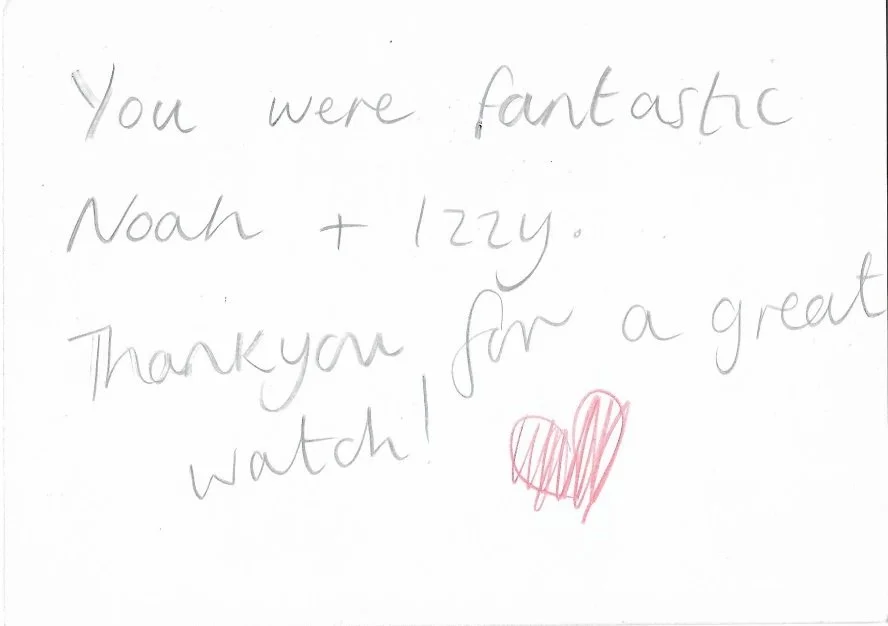 You were fantastic
Noah + Izzy.
Thankyou for a great
watch!